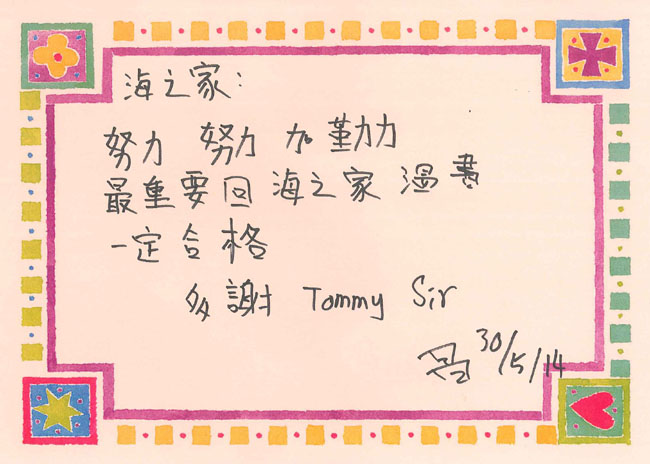 海之家:
努力 努力 加 勤力
最重要回海之家 温書
一定合格
多謝 Tommy Sir
30/5/14